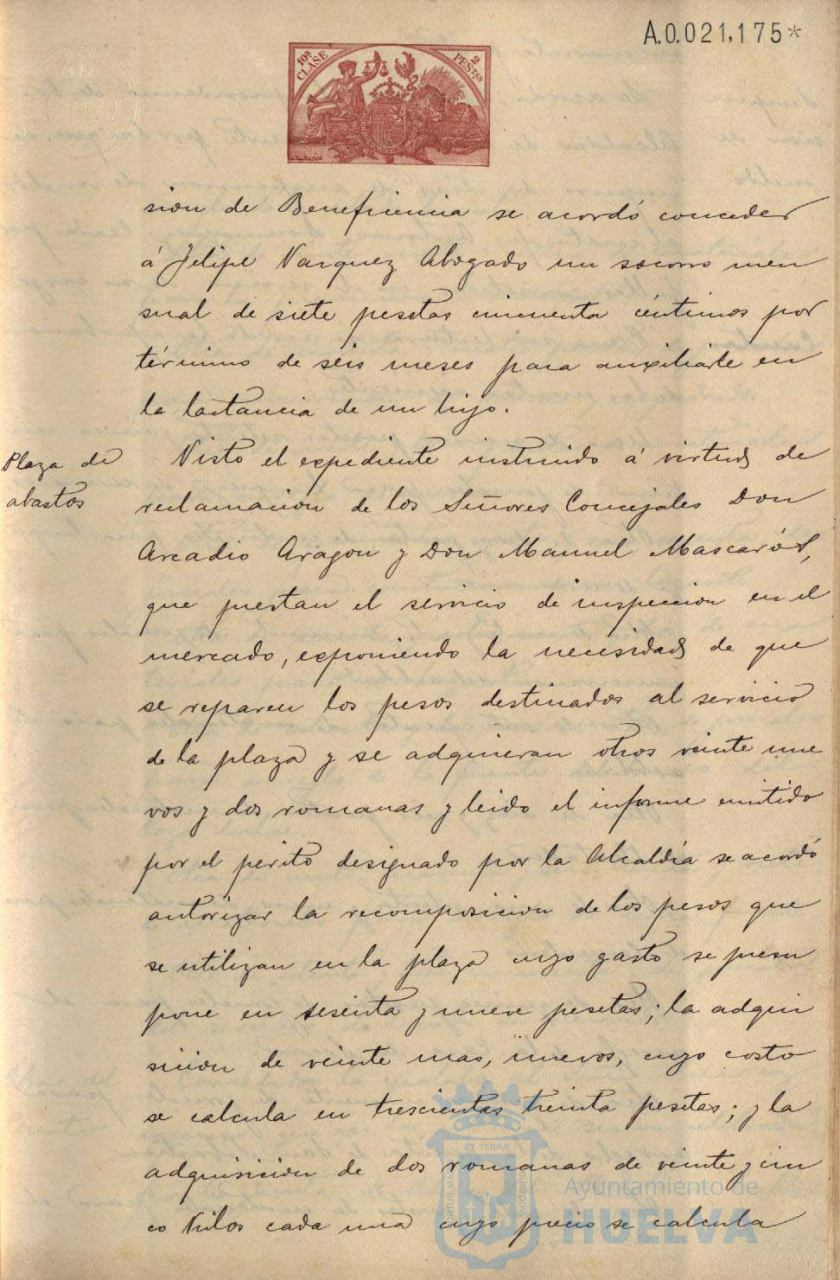 A.0.021,175*
10ª CLASE
2 PESTAS
sion de Beneficencia se acordó conceder
á Felipe Vazquez Abogado un socorro men
sual de siete pesetas cincuenta céntimos por
término de seis meses para auxiliarle en
la lactancia de un hijo.
Plaza de
abastos
Visto el expediente instruido á virtud de
reclamacion de los Señores Concejales Don
Arcadio Aragon y Don Manuel Mascarós,
que prestan el servicio de inspeccion en el
mercado, exponiendo la necesidad de que
se reparen los pesos destinados al servicio
de la plaza y se adquieran otros veinte nue
vos y dos romanas y leido el informe emitido
por el périto designado por la Alcaldía se acordó
autorizar la recomposicion de los pesos que
se utilizan en la plaza cuyo gasto se presu
pone en sesenta y nueve pesetas; la adqui
sicion de veinte mas, nuevos, cuyo costo
se calcula en trescientas treinta pesetas; y la
adquisicion de dos romanas de veinte y cin
co kilos cada una cuyo precio se calcula
Ayuntamiento de
HUELVA